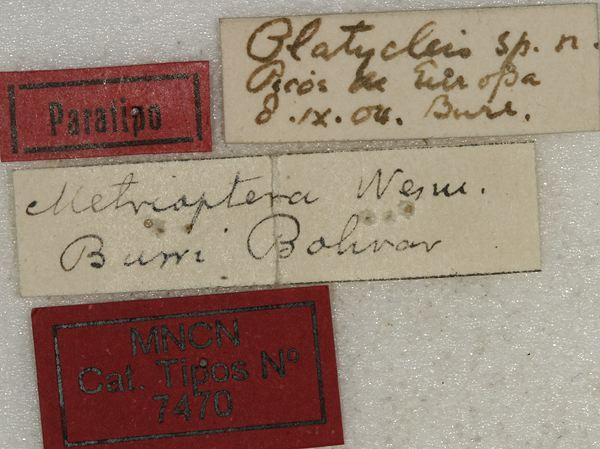 Platycleis sp. n.
Picos de Europa
8.IX.04. Burr.
Paratipo
Metrioptera Wesm.
Burri Bolivar
MNCN
Cat. Tipos Nº
7470